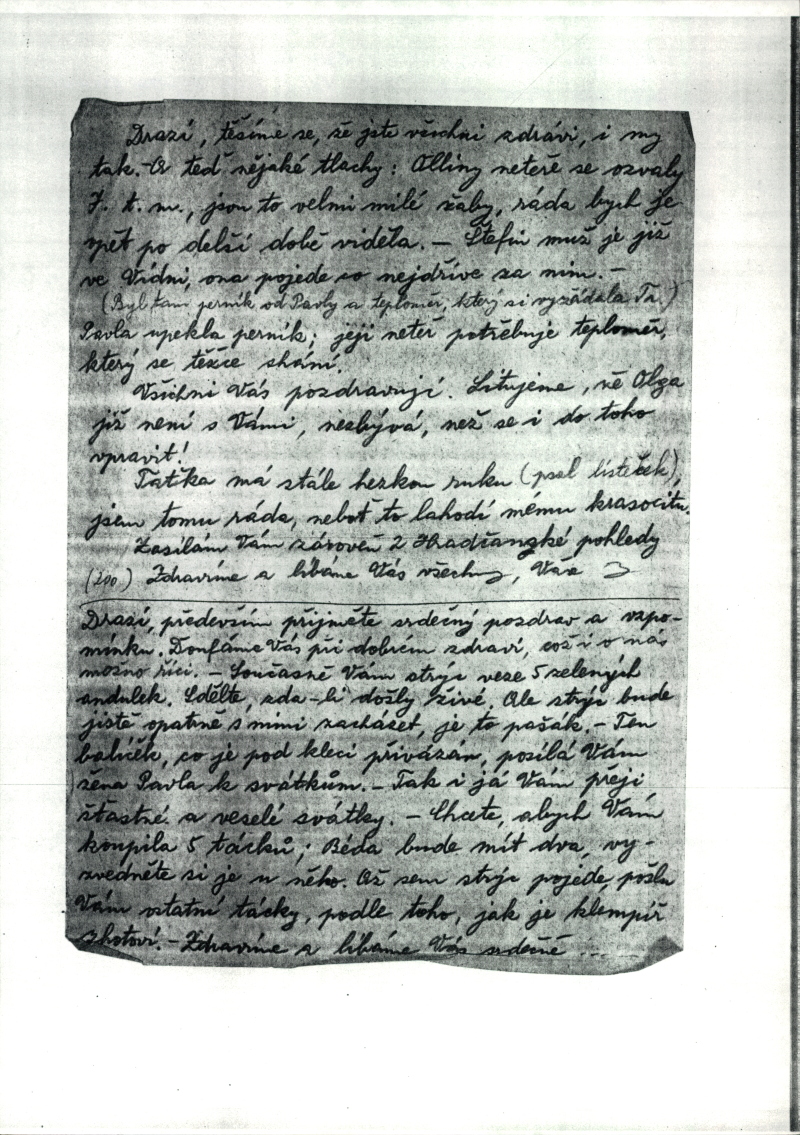 Drazí, těšíme se, že jste všichni zdrávi, i my
tak. - A teď nějaké tlachy: Olliny neteře se ozvaly
J. t. m., jsou to velmi milé žaby, ráda bych je
zpět po delší době viděla. - Štefin muž je již
ve Vídni, ona pojede co nejdříve za ním. -
(Byl tam perník od Pavly a teploměr, který si vyžádala Ta.)
Pavla upekla perník; její neteř potřebuje teploměr,
který se těžce shání.
Všichni Vás pozdravují. Litujeme, že Olga
již není s Vámi, nezbývá, než se i do toho
vpravit!
Taťka má stále hezkou ruku (psal lísteček),
jsem tomu ráda, neboť to lahodí mému krasocitu.
Zasílám Vám zároveň 2 Hradčanské pohledy
(200) Zdravíme a líbáme Vás všechny, Vaše
Drazí, především přijměte srdečný pozdrav a vzpo-
mínku. Doufáme Vás při dobrém zdraví, což i o nás
možno říci. - Současně Vám strýc veze 5 zelených
andulek. Sdělte, zda-li došly živé. Ale strýc bude
jistě opatrně s nimi zacházet, je to pašák. - Ten
balíček, co je pod klecí přivázán, posílá Vám
žena Pavla k svátkům. - Tak i já Vám přeji
šťastné a veselé svátky. - Chcete, abych Vám
koupila 5 tácků; Béda bude mít dva, vy-
zvedněte si je u něho. Až sem strýc pojede, pošlu
Vám ostatní tácky, podle toho, jak je klempíř
zhotoví. - Zdravíme a líbáme Vás srdečně ....